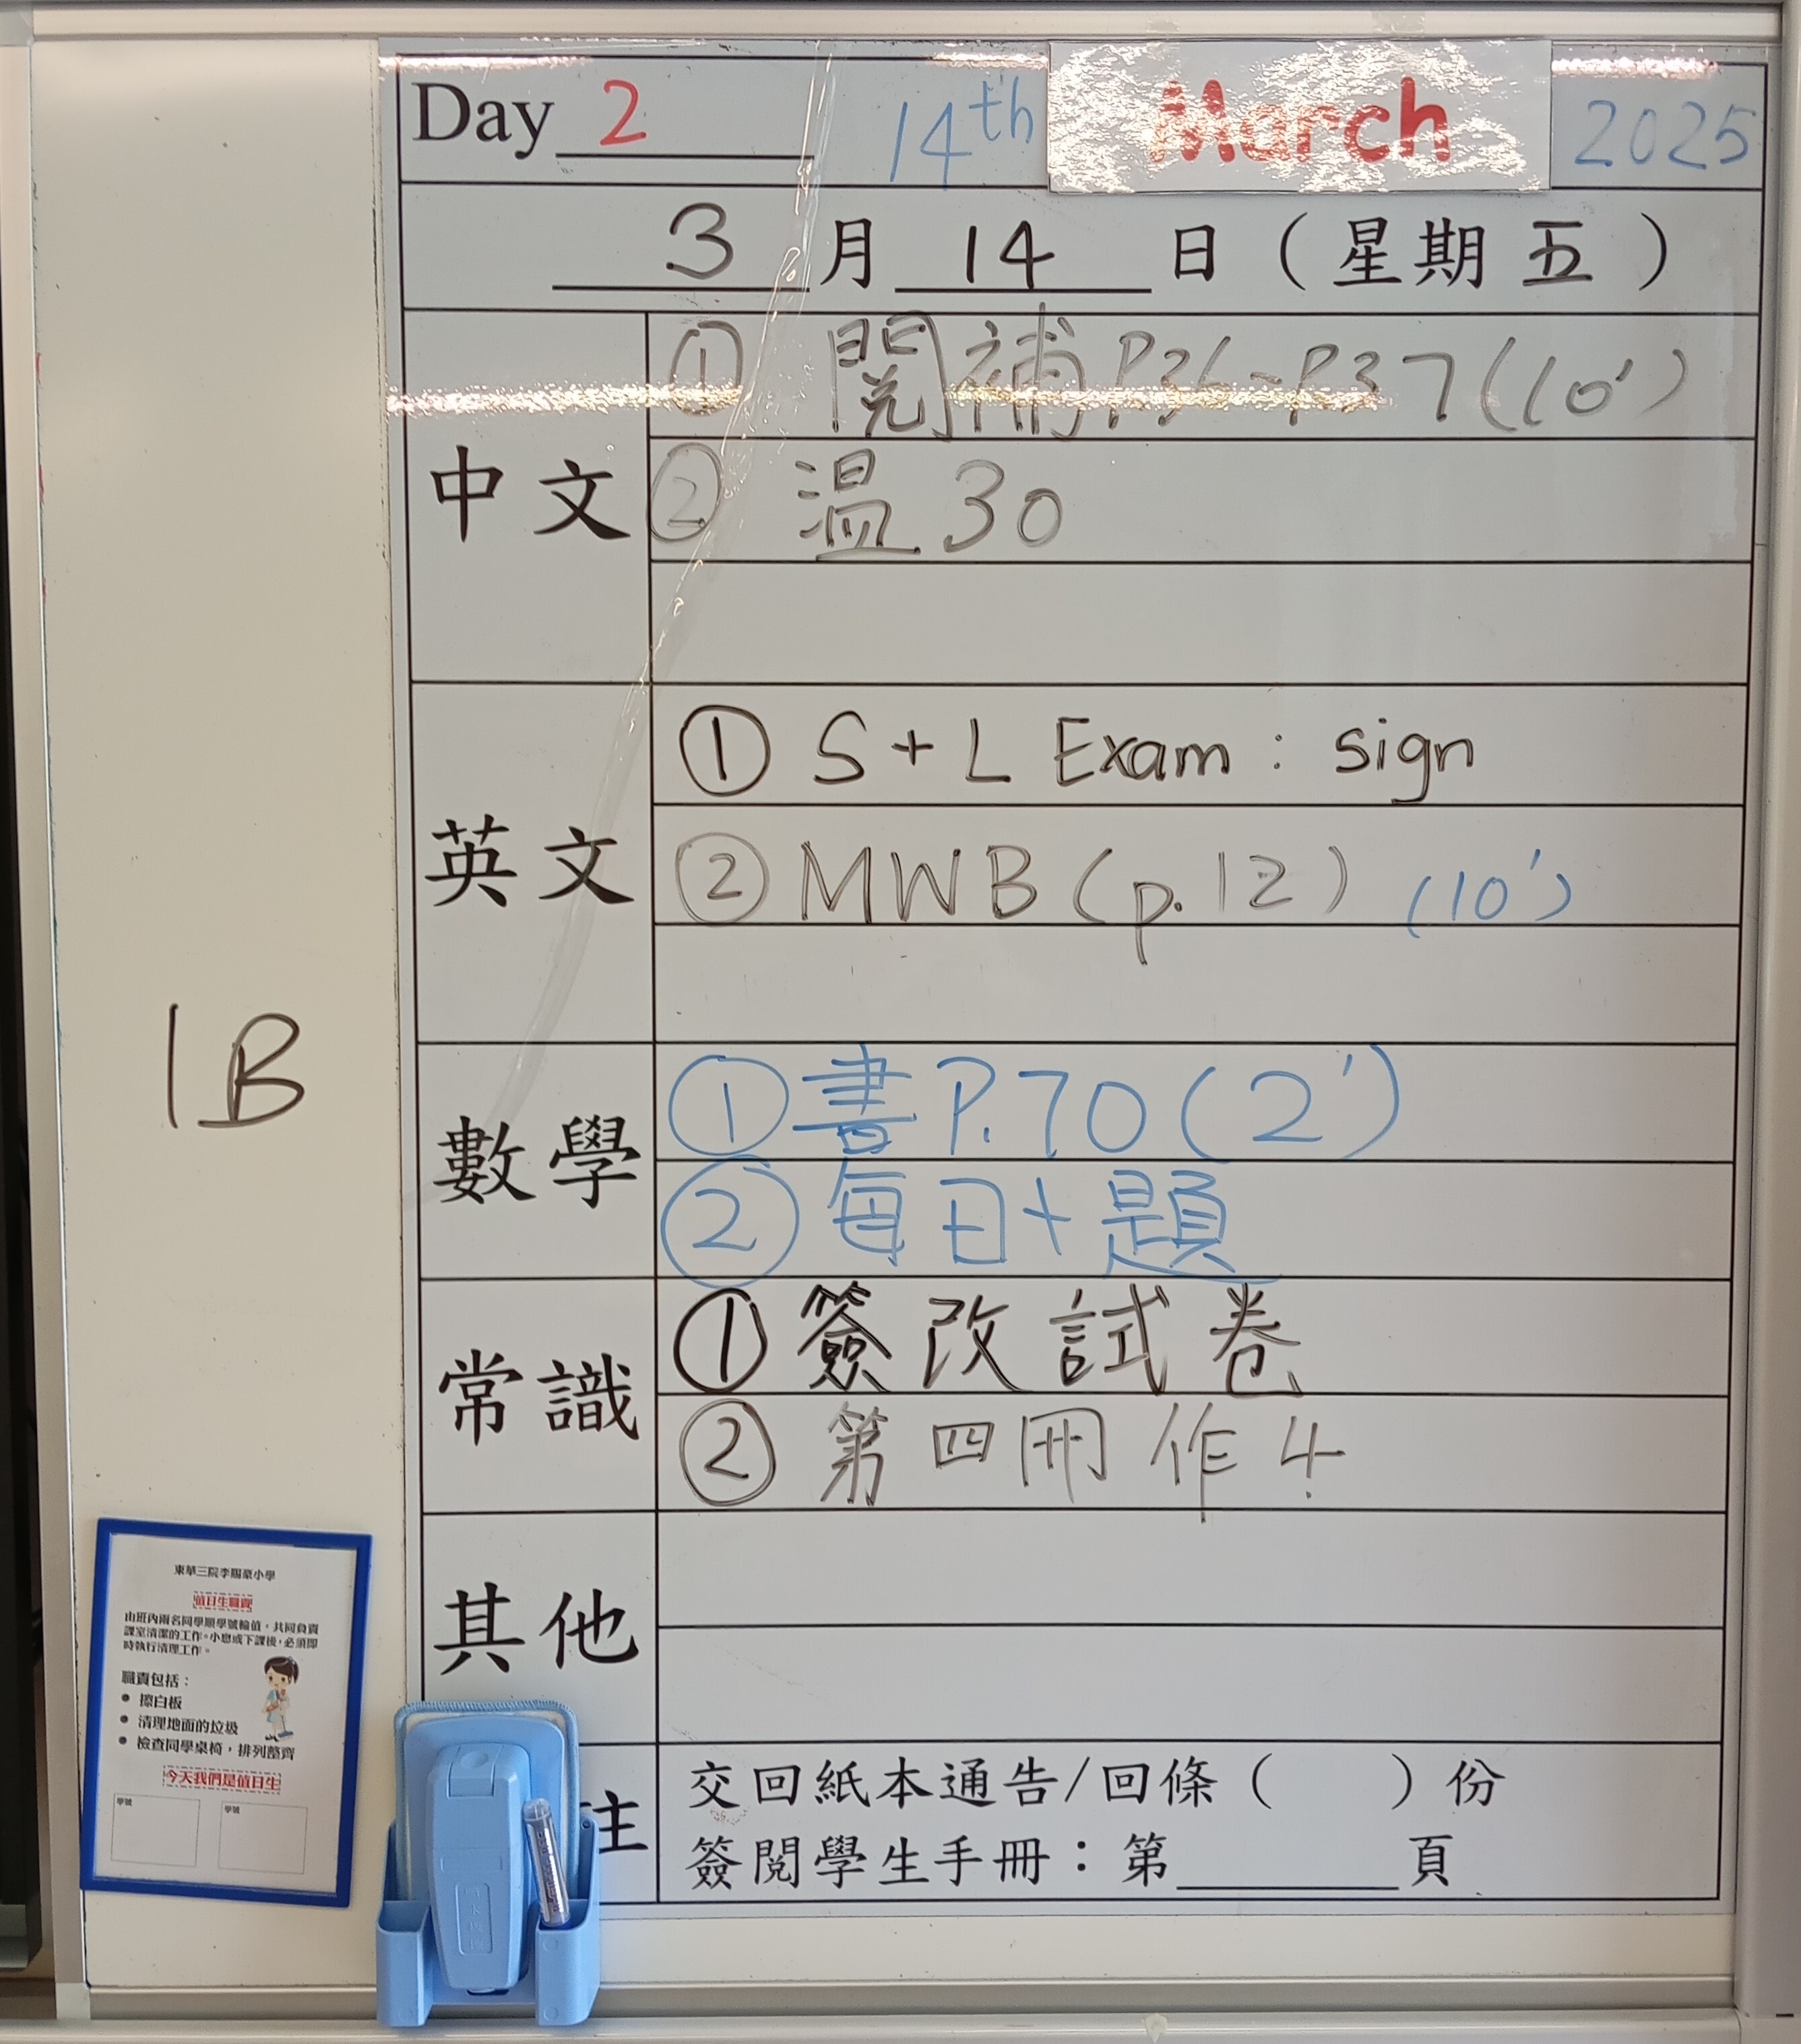 Day 2 14th March 2025
3 月 14 日 ( 星期 五 )
中文
① 閱補 P36-P37 (10')
② 溫 30
英文
① S + L Exam : sign
② MWB (p.12) (10')
1B
數學
① 書 P.70 (2')
② 每日十題
常識
① 簽改試卷
② 第四冊 作4
其他
註
交回紙本通告/回條 ( ) 份
簽閱學生手冊：第 頁
東華三院李賜豪小學
值日生職責
由班內兩名同學順學號輪值，共同負責
課室清潔的工作。小息或下課後，必須即
時執行清理工作。
職責包括：
● 擦白板
● 清理地面的垃圾
● 檢查同學桌椅，排列整齊
今天我們是值日生
學號 學號